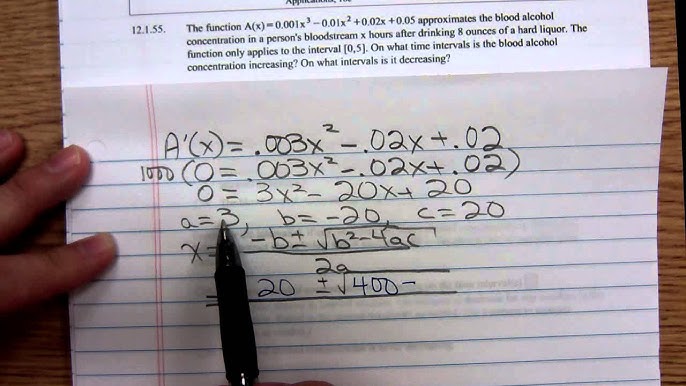 12.1.55. The function A(x)=0.001x³−0.01x²+0.02x+0.05 approximates the blood alcohol
concentration in a person's bloodstream x hours after drinking 8 ounces of a hard liquor. The
function only applies to the interval [0,5]. On what time intervals is the blood alcohol
concentration increasing? On what intervals is it decreasing?
A'(x) = .003x² − .02x + .02
1000 (0 = .003x² − .02x + .02)
0 = 3x² − 20x + 20
a = 3, b = −20, c = 20
x = −b ± √b²−4ac
2a
= 20 ± √400 −